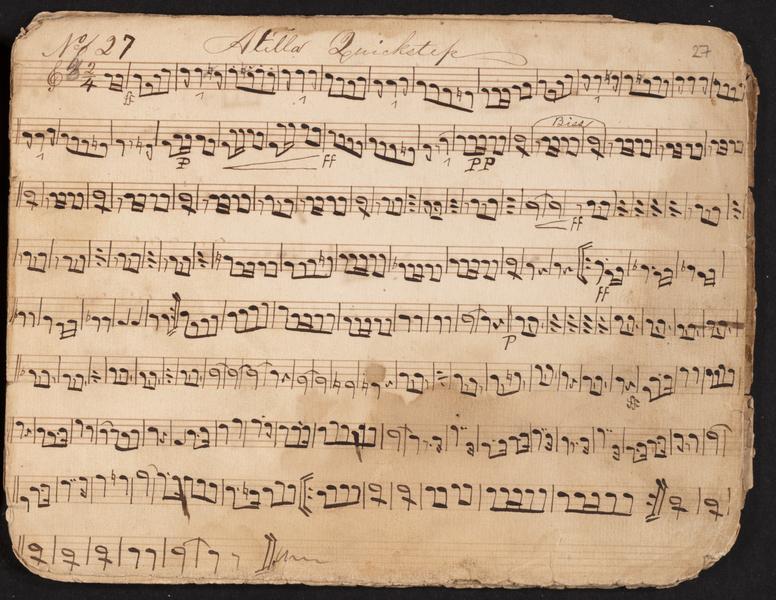 No 27 Atilla Quickstep 27
2/4
ff
Biss
P ff PP
ff
ff
P
ff